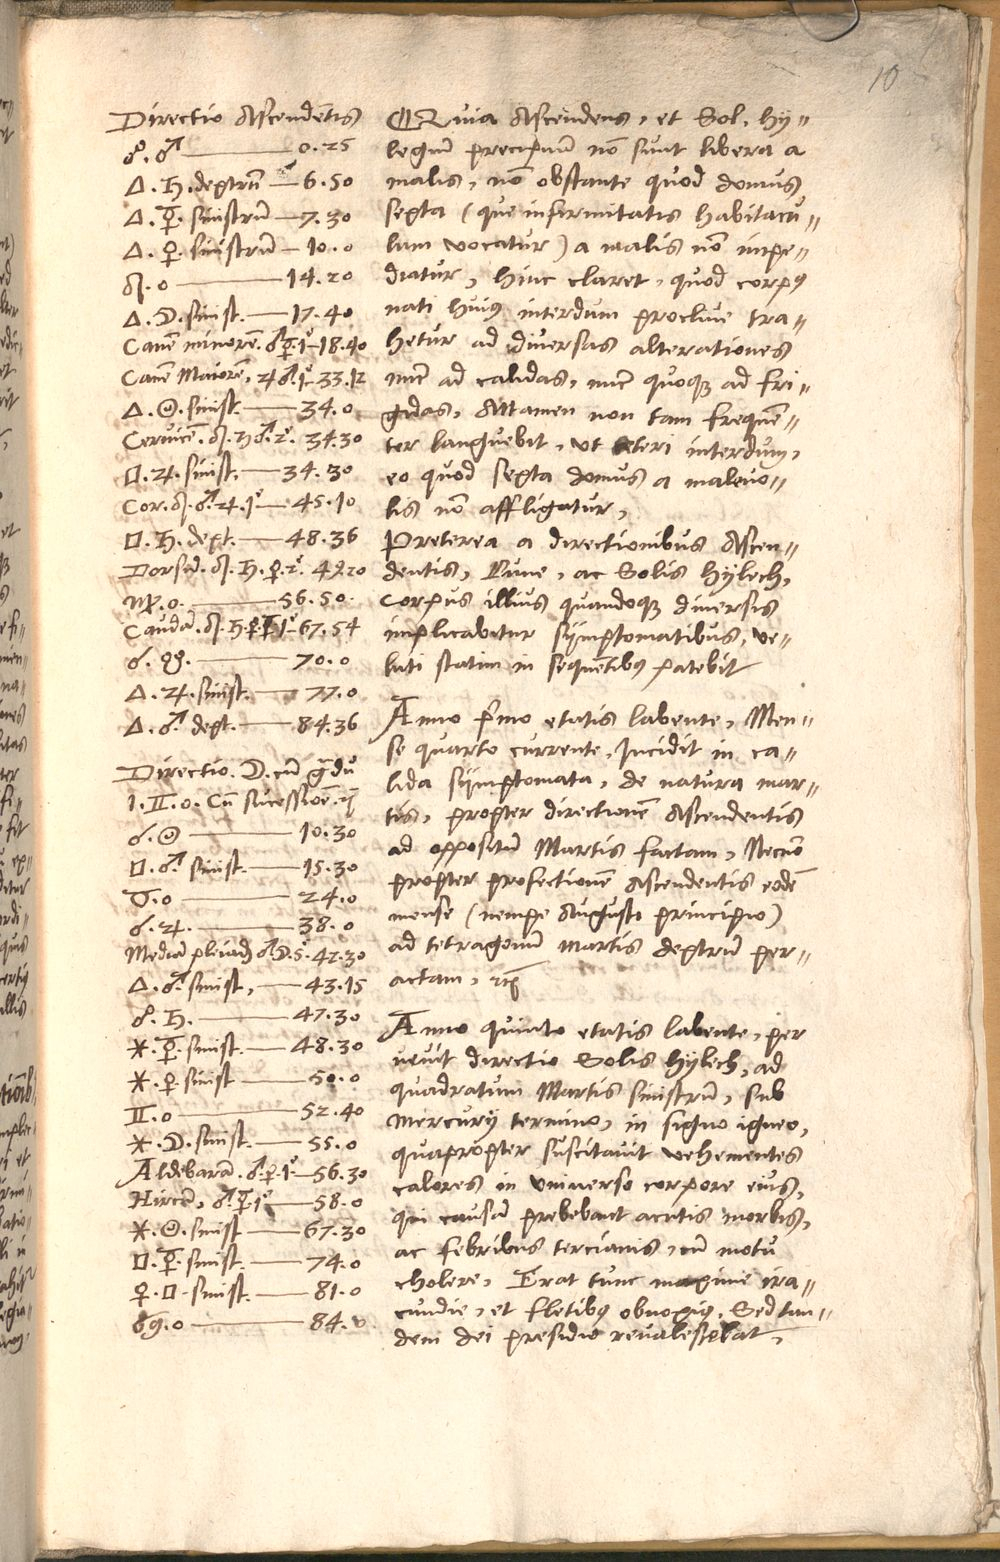 10
Directio Ascendētis
☍.♂ — 0.25
△.♄.dextrū — 6.50
△.☿.sinistrū — 7.30
△.♀.sinistrū — 10.0
♌.0 — 14.20
△.☽.sinist. — 17.40
Canē minorē.♂☿1 — 18.40
Canē Maiorē.♃♂.1 — 33.12
△.☉.sinist. — 34.0
Ceruicē.♌.♄♂.2. 34.30
□.♃.sinist. — 34.30
Cor.♌.♂.♃.1 — 45.10
□.♄.dext. — 48.36
Dorsū.♌.♄.♀.2. 4920
♍.0. — 56.50.
Caudā.♌.♄♀☿1 — 67.54
☌.☋. — 70.0
△.♃.sinist. — 77.0
△.♂.dext. — 84.36
Directio.☽.cū g̃du
1.♊.0. Cū sucessiōe.
☌.☉ — 10.30
□.♂.sinist. — 15.30
♉.0 — 24.0
☌.♃. — 38.0
Mediā pleiadū ♂☽.5. 42.30
△.♂.sinist. — 43.15
☍.♄. — 47.30
⚹.☿.sinist. — 48.30
⚹.♀.sinist — 50.0
♊.0 — 52.40
⚹.☽.sinist. — 55.0
Aldebarā.♂♀.1 — 56.30
Hircū, ♂.☿1 — 58.0
⚹.☉.sinist — 67.30
□.☿.sinist. — 74.0
♀.□.sinist. — 81.0
♋.0 — 84.0
Quia Ascendens, et Sol, hy=
legiū precipuū nō sunt libera a
malis, nō obstante quod domus
sexta (que infirmitatis habitacu=
lum vocatur) a malis nō impe=
diatur, hinc claret, quod corpꝰ
nati huiꝰ interdum procliue tra=
hetur ad diuersas alterationes
nūc ad calidas, nūc quoqꝫ ad fri=
gidas, Attamen non tam frequē=
ter languebit, vt ceteri interdum,
eo quod sexta domus a maleuo=
lis nō affligatur,
Preterea a directionibus Ascen=
dentis, Lune, ac Solis hylech,
corpus illius quandoqꝫ diuersis
implicabitur sijmptomatibus, ve=
luti statim in sequētibꝰ patebit
Anno p̄mo etatis labente, Men=
se quarto currente, Incidit in ca=
lida sijmptomata, de natura mar=
tis, propter directionē Ascendentis
ad oppositū Martis factam, Necnō
propter profectionē Ascendentis eodē
mense (nempe Augusti principio)
ad tetragonū martis dextrū per=
actam, ꝛc
Anno quinto etatis labente, per
uenit directio Solis hylech, ad
quadratum Martis sinistrū, sub
Mercurij termino, in signo igneo,
quapropter suscitauit vehementes
calores in vniuerso corpore eius,
qui causā prebebant acutis morbis,
ac febribus tercianis, cū motu
cholere, Erat tunc maxime ira=
cundie, et fletibꝰ obnoxiꝰ, Sed tan=
dem dei presidio reualescebat,